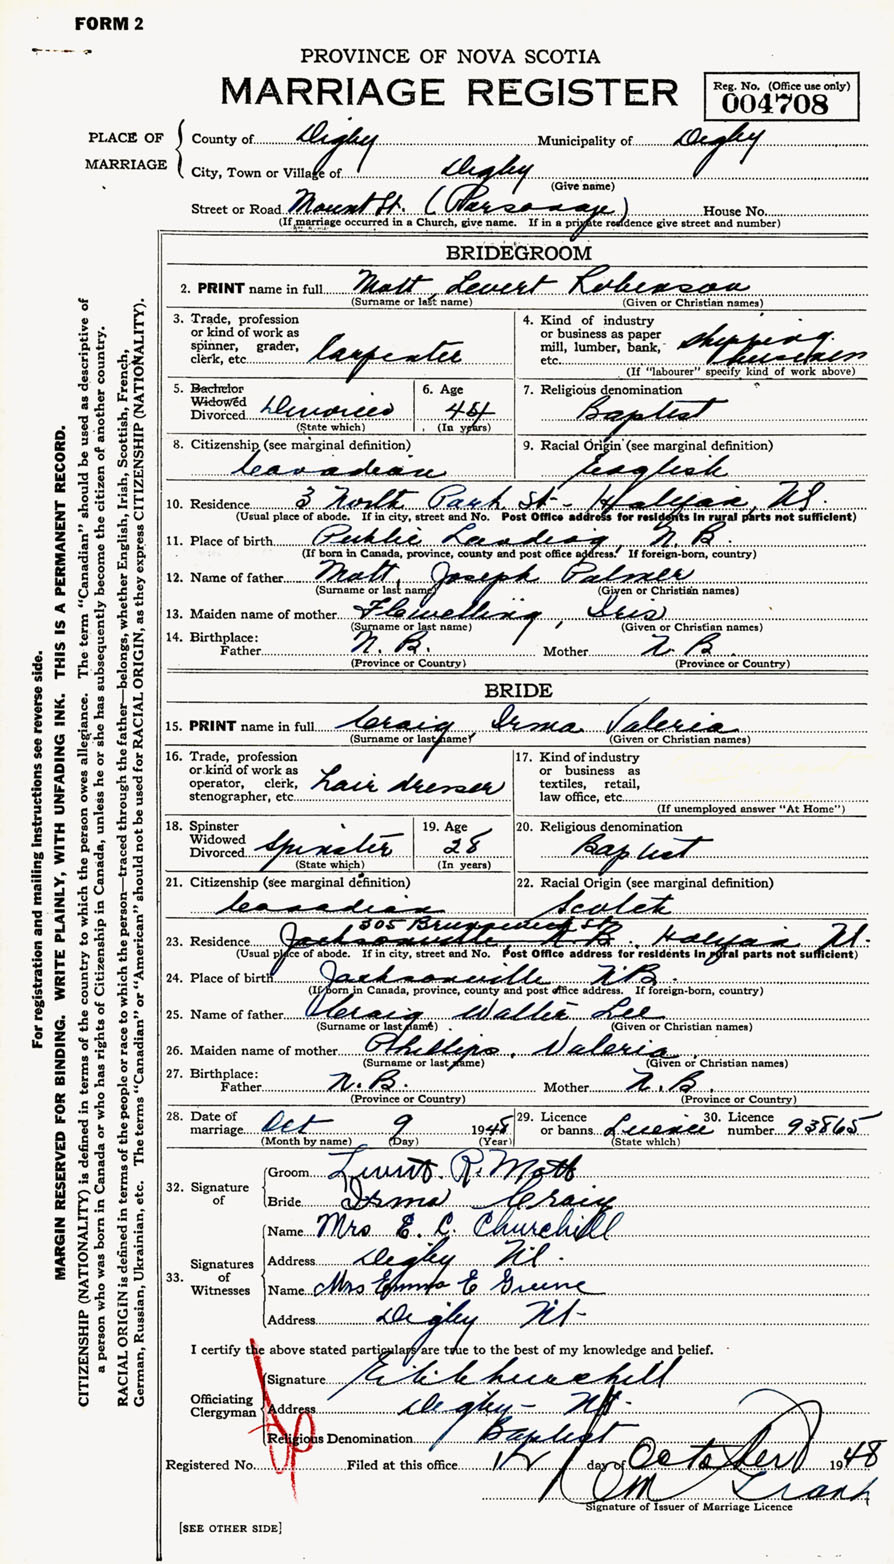 FORM 2
PROVINCE OF NOVA SCOTIA
MARRIAGE REGISTER
Reg. No. (Office use only)
004708
PLACE OF MARRIAGE
County of Digby Municipality of Digby
City, Town or Village of Digby
(Give name)
Street or Road Mount St. (Parsonage) House No.
(If marriage occurred in a Church, give name. If in a private residence give street and number)
BRIDEGROOM
2. PRINT name in full Mott Levert Robinson
(Surname or last name) (Given or Christian names)
3. Trade, profession or kind of work as spinner, grader, clerk, etc. Carpenter
4. Kind of industry or business as paper mill, lumber, bank, etc. shipping business
(If "labourer" specify kind of work above)
5. Bachelor Widowed Divorced Divorced
(State which)
6. Age
(In years)
7. Religious denomination
Baptist
8. Citizenship (see marginal definition)
Canadian
9. Racial Origin (see marginal definition)
English
10. Residence 3 North Park St - Halifax, N.S.
(Usual place of abode. If in city, street and No. Post Office address for residents in rural parts not sufficient)
11. Place of birth Public Landing, N.B.
(If born in Canada, province, county and post office address. If foreign-born, country)
12. Name of father Mott, Joseph Palmer
(Surname or last name) (Given or Christian names)
13. Maiden name of mother Flewelling, Iris
(Surname or last name) (Given or Christian names)
14. Birthplace:
Father N.B. Mother N.B.
(Province or Country) (Province or Country)
BRIDE
15. PRINT name in full Craig, Irma Valeria
(Surname or last name) (Given or Christian names)
16. Trade, profession or kind of work as operator, clerk, stenographer, etc. hair dresser
17. Kind of industry or business as textiles, retail, law office, etc.
(If unemployed answer "At Home")
18. Spinster Widowed Divorced Spinster
(State which)
19. Age
28
(In years)
20. Religious denomination
Baptist
21. Citizenship (see marginal definition)
Canadian
22. Racial Origin (see marginal definition)
Scotch
305 Brunswick St
23. Residence Jacksonville N.B. Halifax N.S.
(Usual place of abode. If in city, street and No. Post Office address for residents in rural parts not sufficient)
24. Place of birth Jacksonville N.B.
(If born in Canada, province, county and post office address. If foreign-born, country)
25. Name of father Craig Walter Lee
(Surname or last name) (Given or Christian names)
26. Maiden name of mother Phillips, Valeria
(Surname or last name) (Given or Christian names)
27. Birthplace:
Father N.B. Mother N.B.
(Province or Country) (Province or Country)
28. Date of marriage Oct 9 1948
(Month by name) (Day) (Year)
29. Licence or banns Licence
(State which)
30. Licence number 93865
32. Signature of
Groom Levert R. Mott
Bride Irma Craig
33. Signatures of Witnesses
Name Mrs E. C. Churchill
Address Digby N.S.
Name Mrs Emma E Greene
Address Digby N.S.
I certify the above stated particulars are true to the best of my knowledge and belief.
Officiating Clergyman
Signature E. C. Churchill
Address Digby - N.S.
Religious Denomination Baptist
Registered No. Filed at this office 12 day of October 1948
Grant
Signature of Issuer of Marriage Licence
[SEE OTHER SIDE]
For registration and mailing instructions see reverse side.
MARGIN RESERVED FOR BINDING. WRITE PLAINLY, WITH UNFADING INK. THIS IS A PERMANENT RECORD.
CITIZENSHIP (NATIONALITY) is defined in terms of the country to which the person owes allegiance. The term "Canadian" should be used as descriptive of
a person who was born in Canada or who has rights of Citizenship in Canada, unless he or she has subsequently become the citizen of another country.
RACIAL ORIGIN is defined in terms of the people or race to which the person—traced through the father—belongs, whether English, Irish, Scottish, French,
German, Russian, Ukrainian, etc. The terms "Canadian" or "American" should not be used for RACIAL ORIGIN, as they express CITIZENSHIP (NATIONALITY).